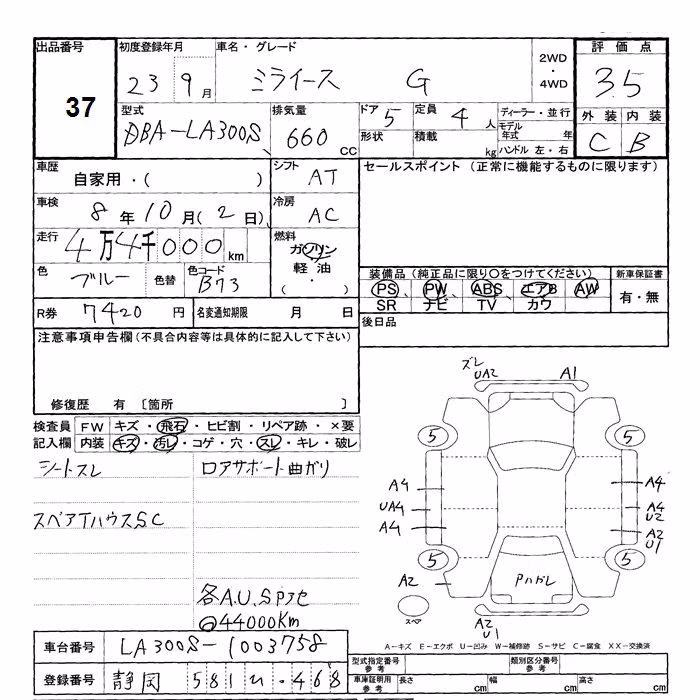 出品番号
37
初度登録年月
23 9月
車名・グレード
ミライース G
2WD
・
4WD
評価点
3.5
型式
DBA-LA300S
排気量
660 CC
ドア 5
定員 4 人
形状
積載 kg
ディーラー・並行
モデル年式 年
ハンドル 左・右
外装 内装
C B
車歴
自家用・( )
シフト AT
セールスポイント (正常に機能するものに限ります)
車検
8年10月(2日)
冷房 AC
走行
4万4千000km
燃料
ガソリン
軽油
( ・ )
色 ブルー
色替
色コード B73
装備品 (純正品に限り○をつけてください)
新車保証書
PS PW ABS エアB AW
SR ナビ TV カワ
有・無
R券 7420 円
名変通知期限 月 日
後日品
注意事項申告欄(不具合内容等は具体的に記入して下さい)
修復歴 有 〔箇所 〕
検査員記入欄
FW キズ・飛石・ヒビ割・リペア跡・×要
内装 キズ・汚レ・コゲ・穴・スレ・キレ・破レ
シートスレ
ロアサポート曲がり
スペアTハウスSC
各A.U.S
@44000Km
ズレ
UA2
A1
5
5
A4
UA4
A4
A4
A4
U2
A2
U1
5
5
A2
Pハガレ
スペア
A2
U1
A-キズ E-エクボ U-凹み W-補修跡 S-サビ C-腐食 XX-交換済
車台番号 LA300S-1003758
登録番号 静岡 581 い・468
型式指定番号 参考
類別区分番号 参考
車庫証明用 参考
長さ cm
幅 cm
高さ cm